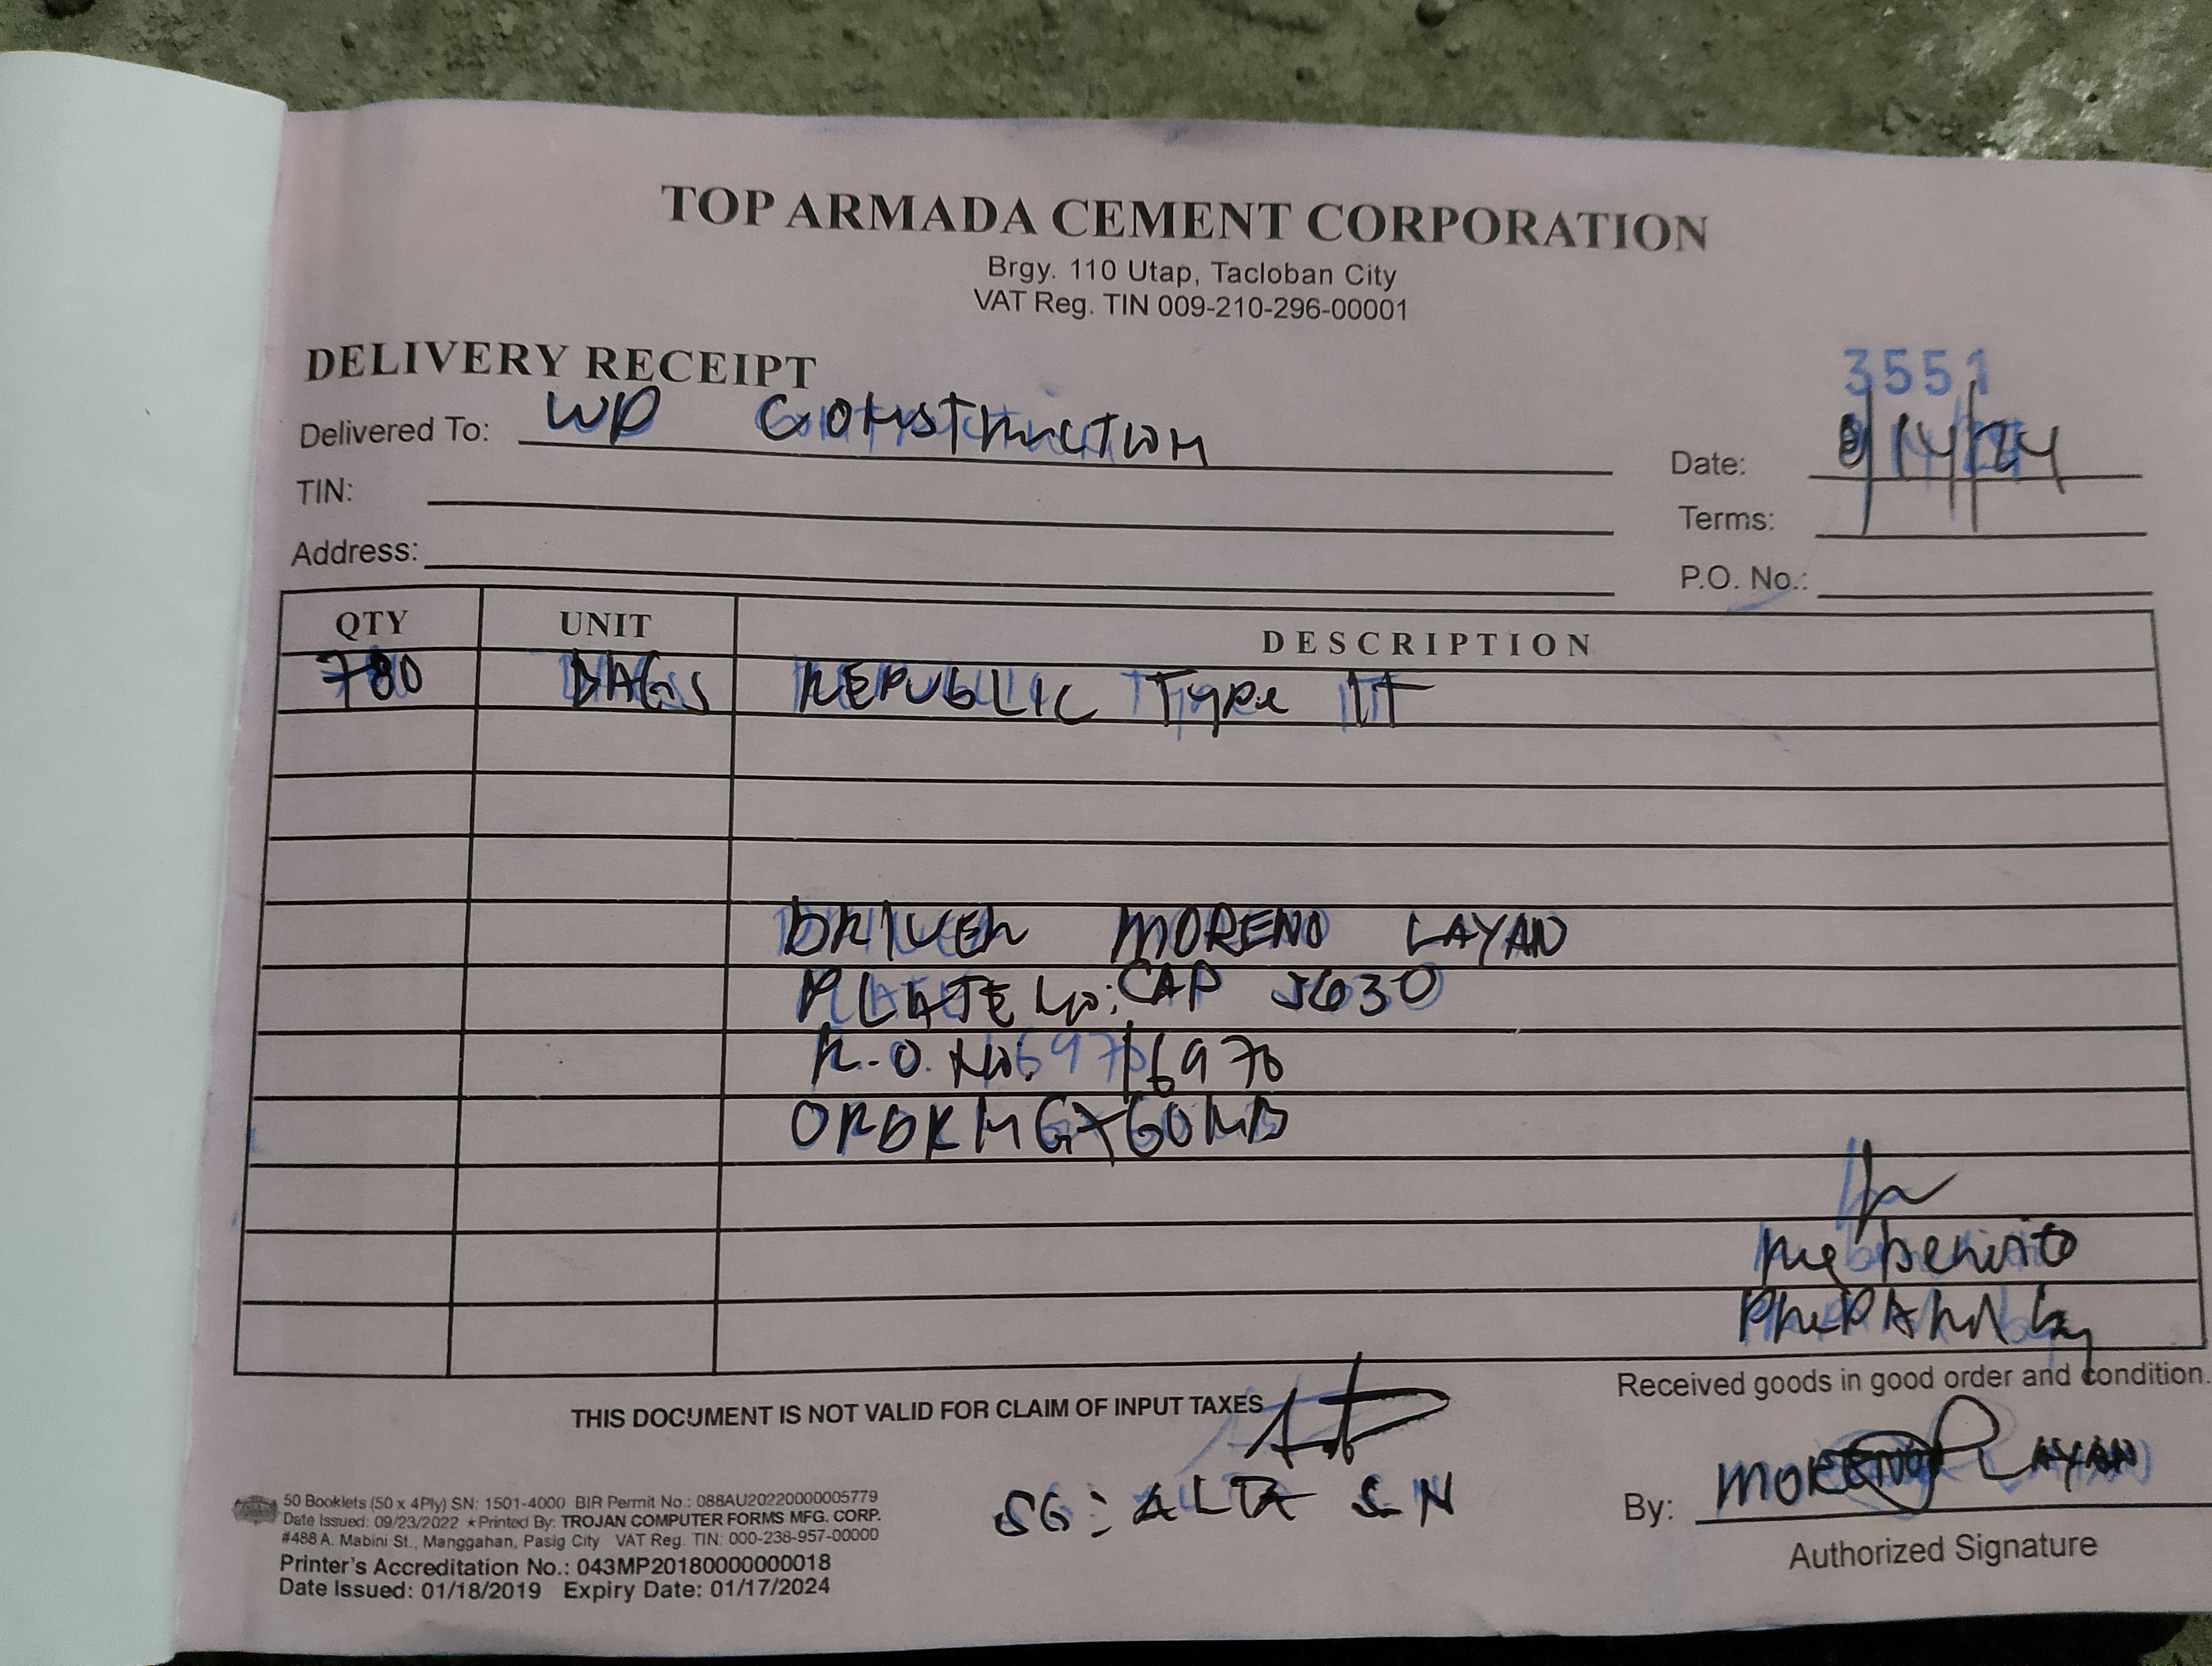 TOP ARMADA CEMENT CORPORATION
Brgy. 110 Utap, Tacloban City
VAT Reg. TIN 009-210-296-00001
DELIVERY RECEIPT
3551
Delivered To: WD CONSTRUCTION
Date: /14/24
TIN:
Terms:
Address:
P.O. No.:
QTY UNIT DESCRIPTION
780 BAGS REPUBLIC Type IT
DRIVER MORENO LAYAN
PLATE No: CAP 5630
R.O. No: 6976 6976
Prepared by
Received goods in good order and condition.
THIS DOCUMENT IS NOT VALID FOR CLAIM OF INPUT TAXES
SG: ALTA S N
By: MORENO LAYAN
Authorized Signature
50 Booklets (50 x 4Ply) SN: 1501-4000 BIR Permit No.: 088AU20220000005779
Date Issued: 09/23/2022 ★Printed By: TROJAN COMPUTER FORMS MFG. CORP.
#488 A. Mabini St., Manggahan, Pasig City VAT Reg. TIN: 000-238-957-00000
Printer's Accreditation No.: 043MP20180000000018
Date Issued: 01/18/2019 Expiry Date: 01/17/2024